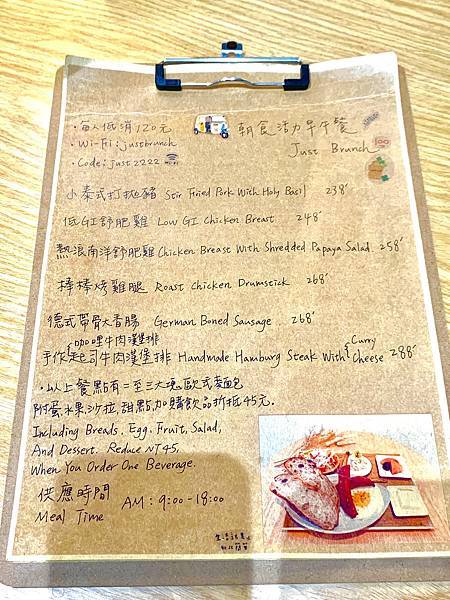 ・每人低消120元
・Wi-Fi: justbrunch
・Code: just2222
朝食活力早午餐
Just Brunch
小泰式打拋豬 Stir Fried Pork With Holy Basil 238
低GI舒肥雞 Low GI Chicken Breast 248
熱浪南洋舒肥雞 Chicken Breast With Shredded Papaya Salad 258
棒棒烤雞腿 Roast Chicken Drumstick 268
德式帶骨大香腸 German Boned Sausage 268
咖哩牛肉漢堡排 Curry
手作起司牛肉漢堡排 Handmade Hamburg Steak With Cheese 288
・以上餐點有二至三大塊歐式麵包
附蛋.水果.沙拉.甜點,加購飲品折抵45元.
Including Breads. Egg. Fruit, Salad,
And Dessert. Reduce NT45,
When You Order One Beverage.
供應時間
Meal Time
AM: 9:00-18:00